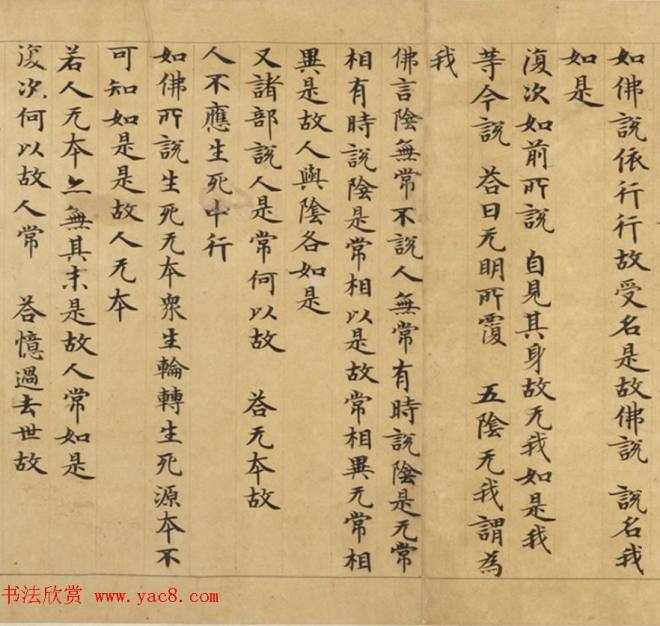 如佛說依行行故受名是故佛說 說名我
如是
復次如前所說 自見其身故无我如是我
等今說 荅曰无明所覆 五陰无我謂為
我
佛言陰無常不說人無常有時說陰是无常
相有時說陰是常相以是故常相異无常相
異是故人與陰各如是
又諸部說人是常何以故 荅无本故
人不應生死中行
如佛所說生死无本衆生輪轉生死源本不
可知如是是故人无本
若人无本亦無其末是故人常如是
復次何以故人常 荅憶過去世故
书法欣赏 www.yac8.com